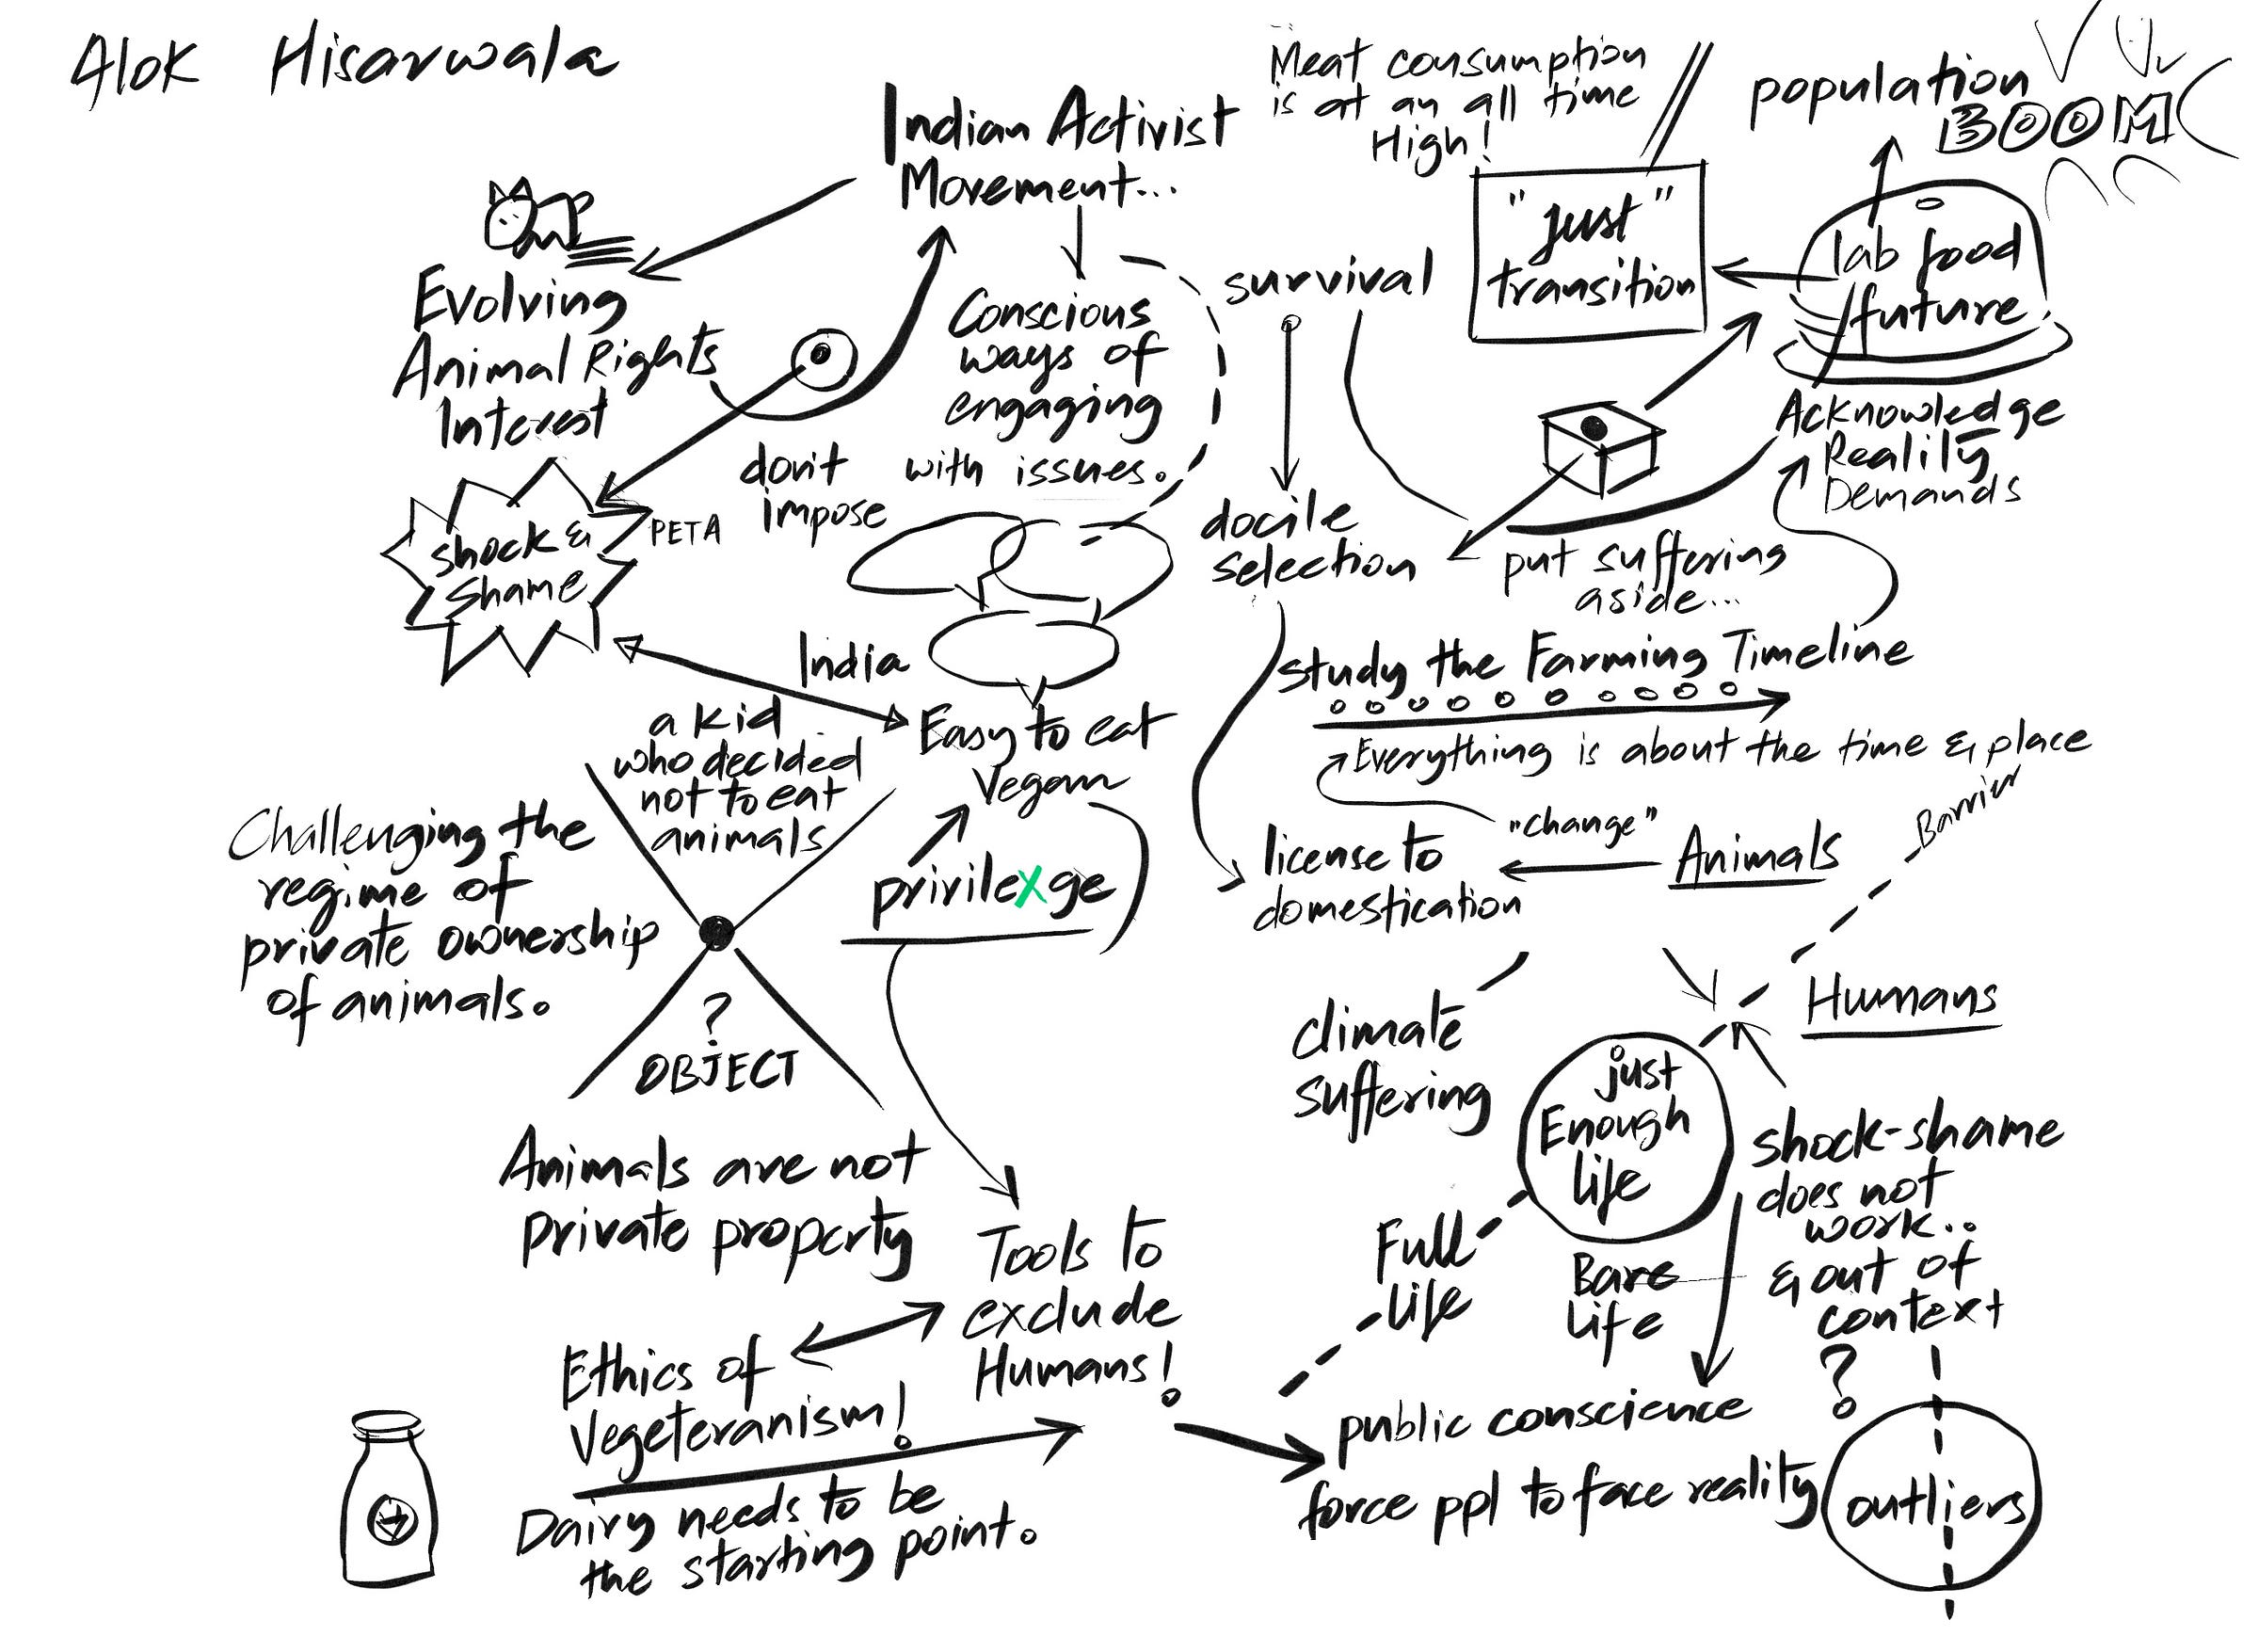 Alok Hisarwala
Indian Activist
Movement...
Meat consumption
is at an all time
High!
population
BOOM
"just"
transition
lab food
/future
Evolving
Animal Rights
Interest
Conscious
ways of
engaging
with issues.
survival
Acknowledge
Reality
Demands
don't
impose
shock &
shame
PETA
docile
selection
put suffering
aside...
India
study the Farming Timeline
Everything is about the time & place
Easy to eat
Vegan
a kid
who decided
not to eat
animals
Challenging the
regime of
private ownership
of animals.
privilexge
license to
domestication
"change"
Animals
Barrier
Humans
?
OBJECT
climate
suffering
just
Enough
life
Animals are not
private property
shock-shame
does not
work..
& out of
context
?
Full
life
Bare
life
Tools to
exclude
Humans!
Ethics of
Vegeteranism!
public conscience
force ppl to face reality
outliers
Dairy needs to be
the starting point.